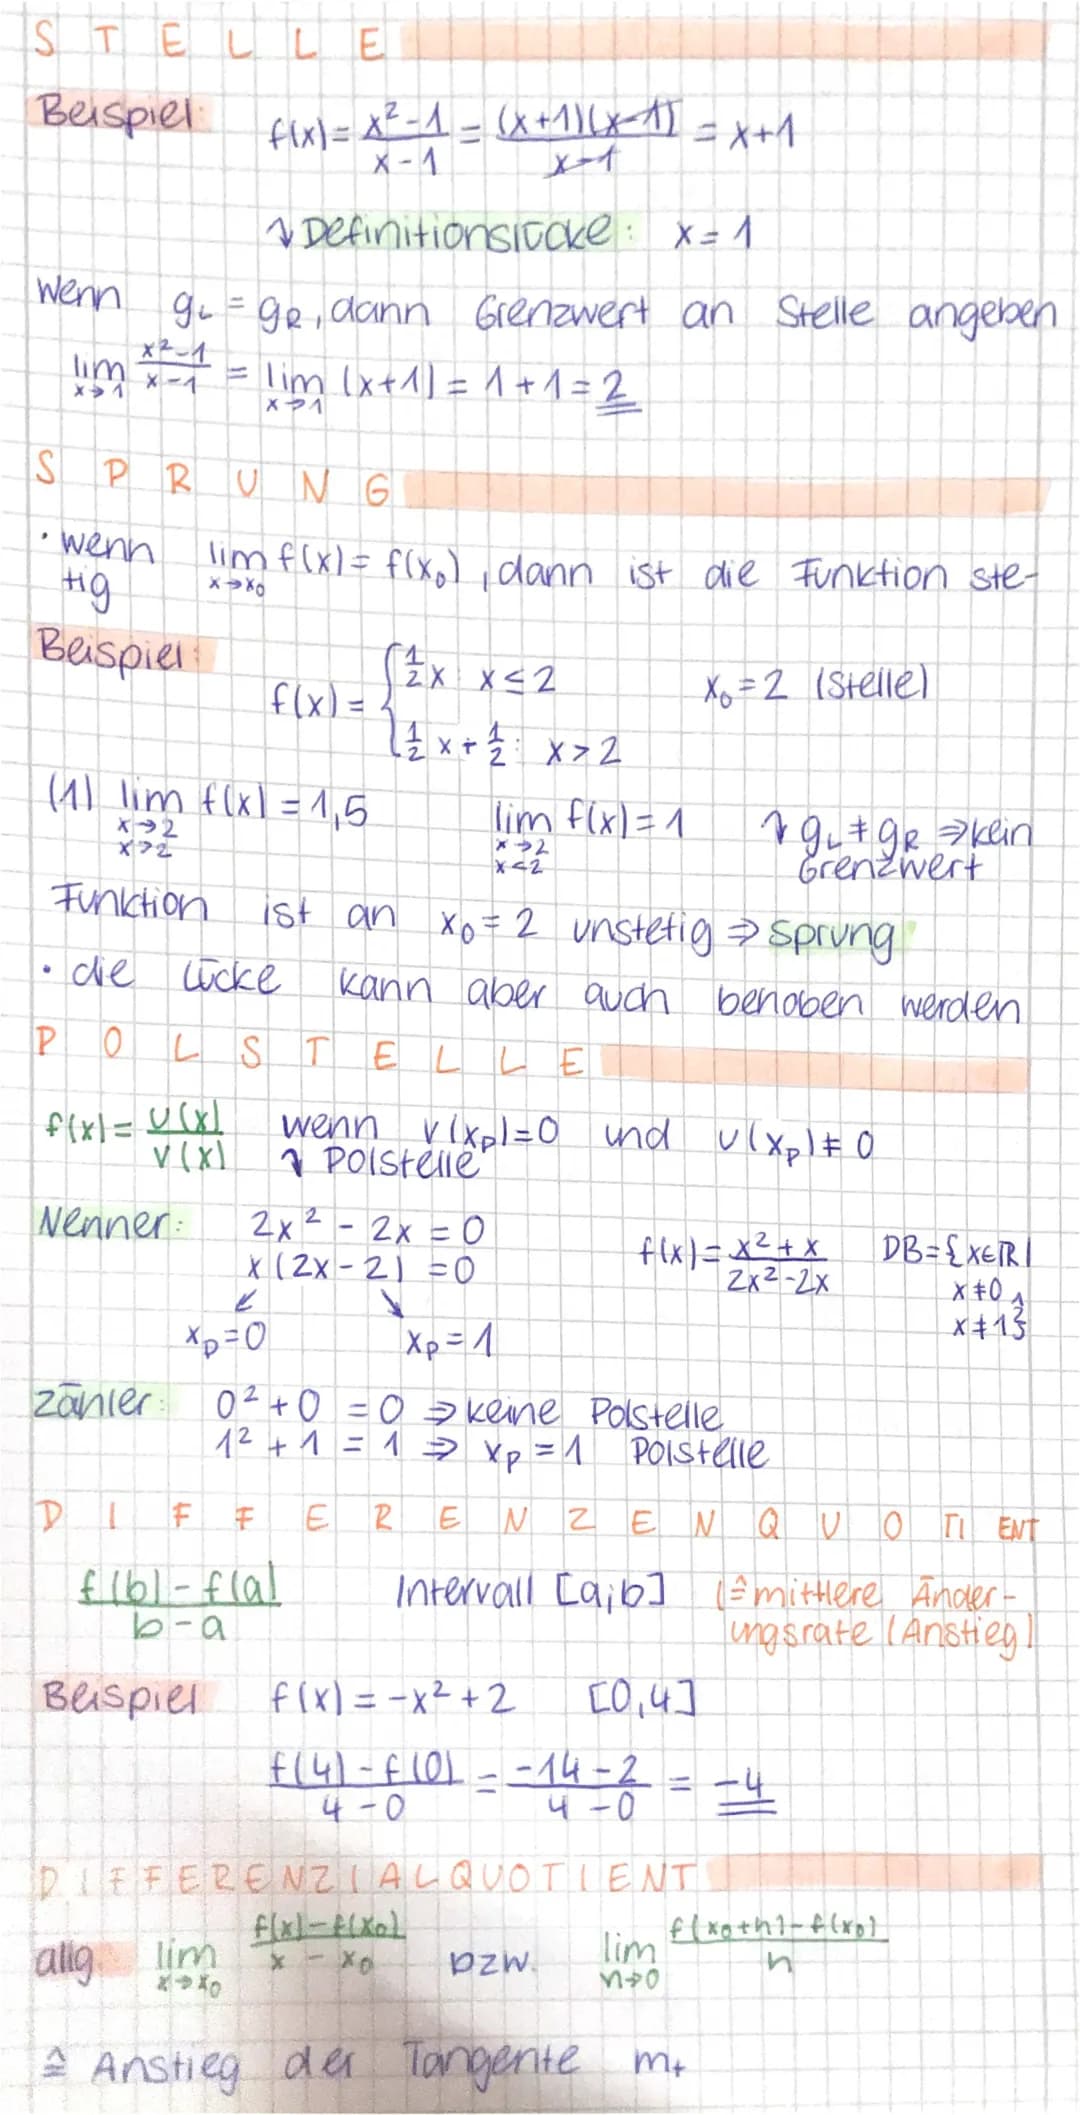 STELLE
Beispiel: f(x) = (x²-1)/(x-1) = ((x+1)(x-1))/(x-1) = x+1
↴ Definitionslücke: x = 1
Wenn gL = gR, dann Grenzwert an Stelle angeben
lim x→1 (x²-1)/(x-1) = lim x→1 (x+1) = 1+1 = 2
SPRUNG
• wenn lim x→x₀ f(x) = f(x₀), dann ist die Funktion ste-
tig
Beispiel:
f(x) = { ½x: x ≤ 2 x₀ = 2 (Stelle)
½x + ½: x > 2
(1) lim x→2 x>2 f(x) = 1,5 lim x→2 x<2 f(x) = 1 ↴ gL ≠ gR ⇒ kein
Grenzwert
Funktion ist an x₀ = 2 unstetig ⇒ Sprung
• die Lücke kann aber auch behoben werden
POLSTELLE
f(x) = u(x)/v(x) wenn v(xp) = 0 und u(xp) ≠ 0
↴ Polstelle
Nenner: 2x² - 2x = 0
x(2x-2) = 0
xp = 0 xp = 1
f(x) = (x²+x)/(2x²-2x) DB = {x∈ℝ|
x≠0 ∧
x≠1}
Zähler: 0² + 0 = 0 ⇒ keine Polstelle
1² + 1 = 1 ⇒ xp = 1 Polstelle
DIFFERENZENQUOTIENT
(f(b) - f(a))/(b-a) Intervall [a;b] (≙ mittlere Änder-
ungsrate (Anstieg)
Beispiel f(x) = -x² + 2 [0,4]
(f(4) - f(0))/(4-0) = (-14-2)/(4-0) = -4
DIFFERENZIALQUOTIENT
allg. lim x→x₀ (f(x)-f(x₀))/(x-x₀) bzw. lim h→0 (f(x₀+h)-f(x₀))/h
≙ Anstieg der Tangente mt